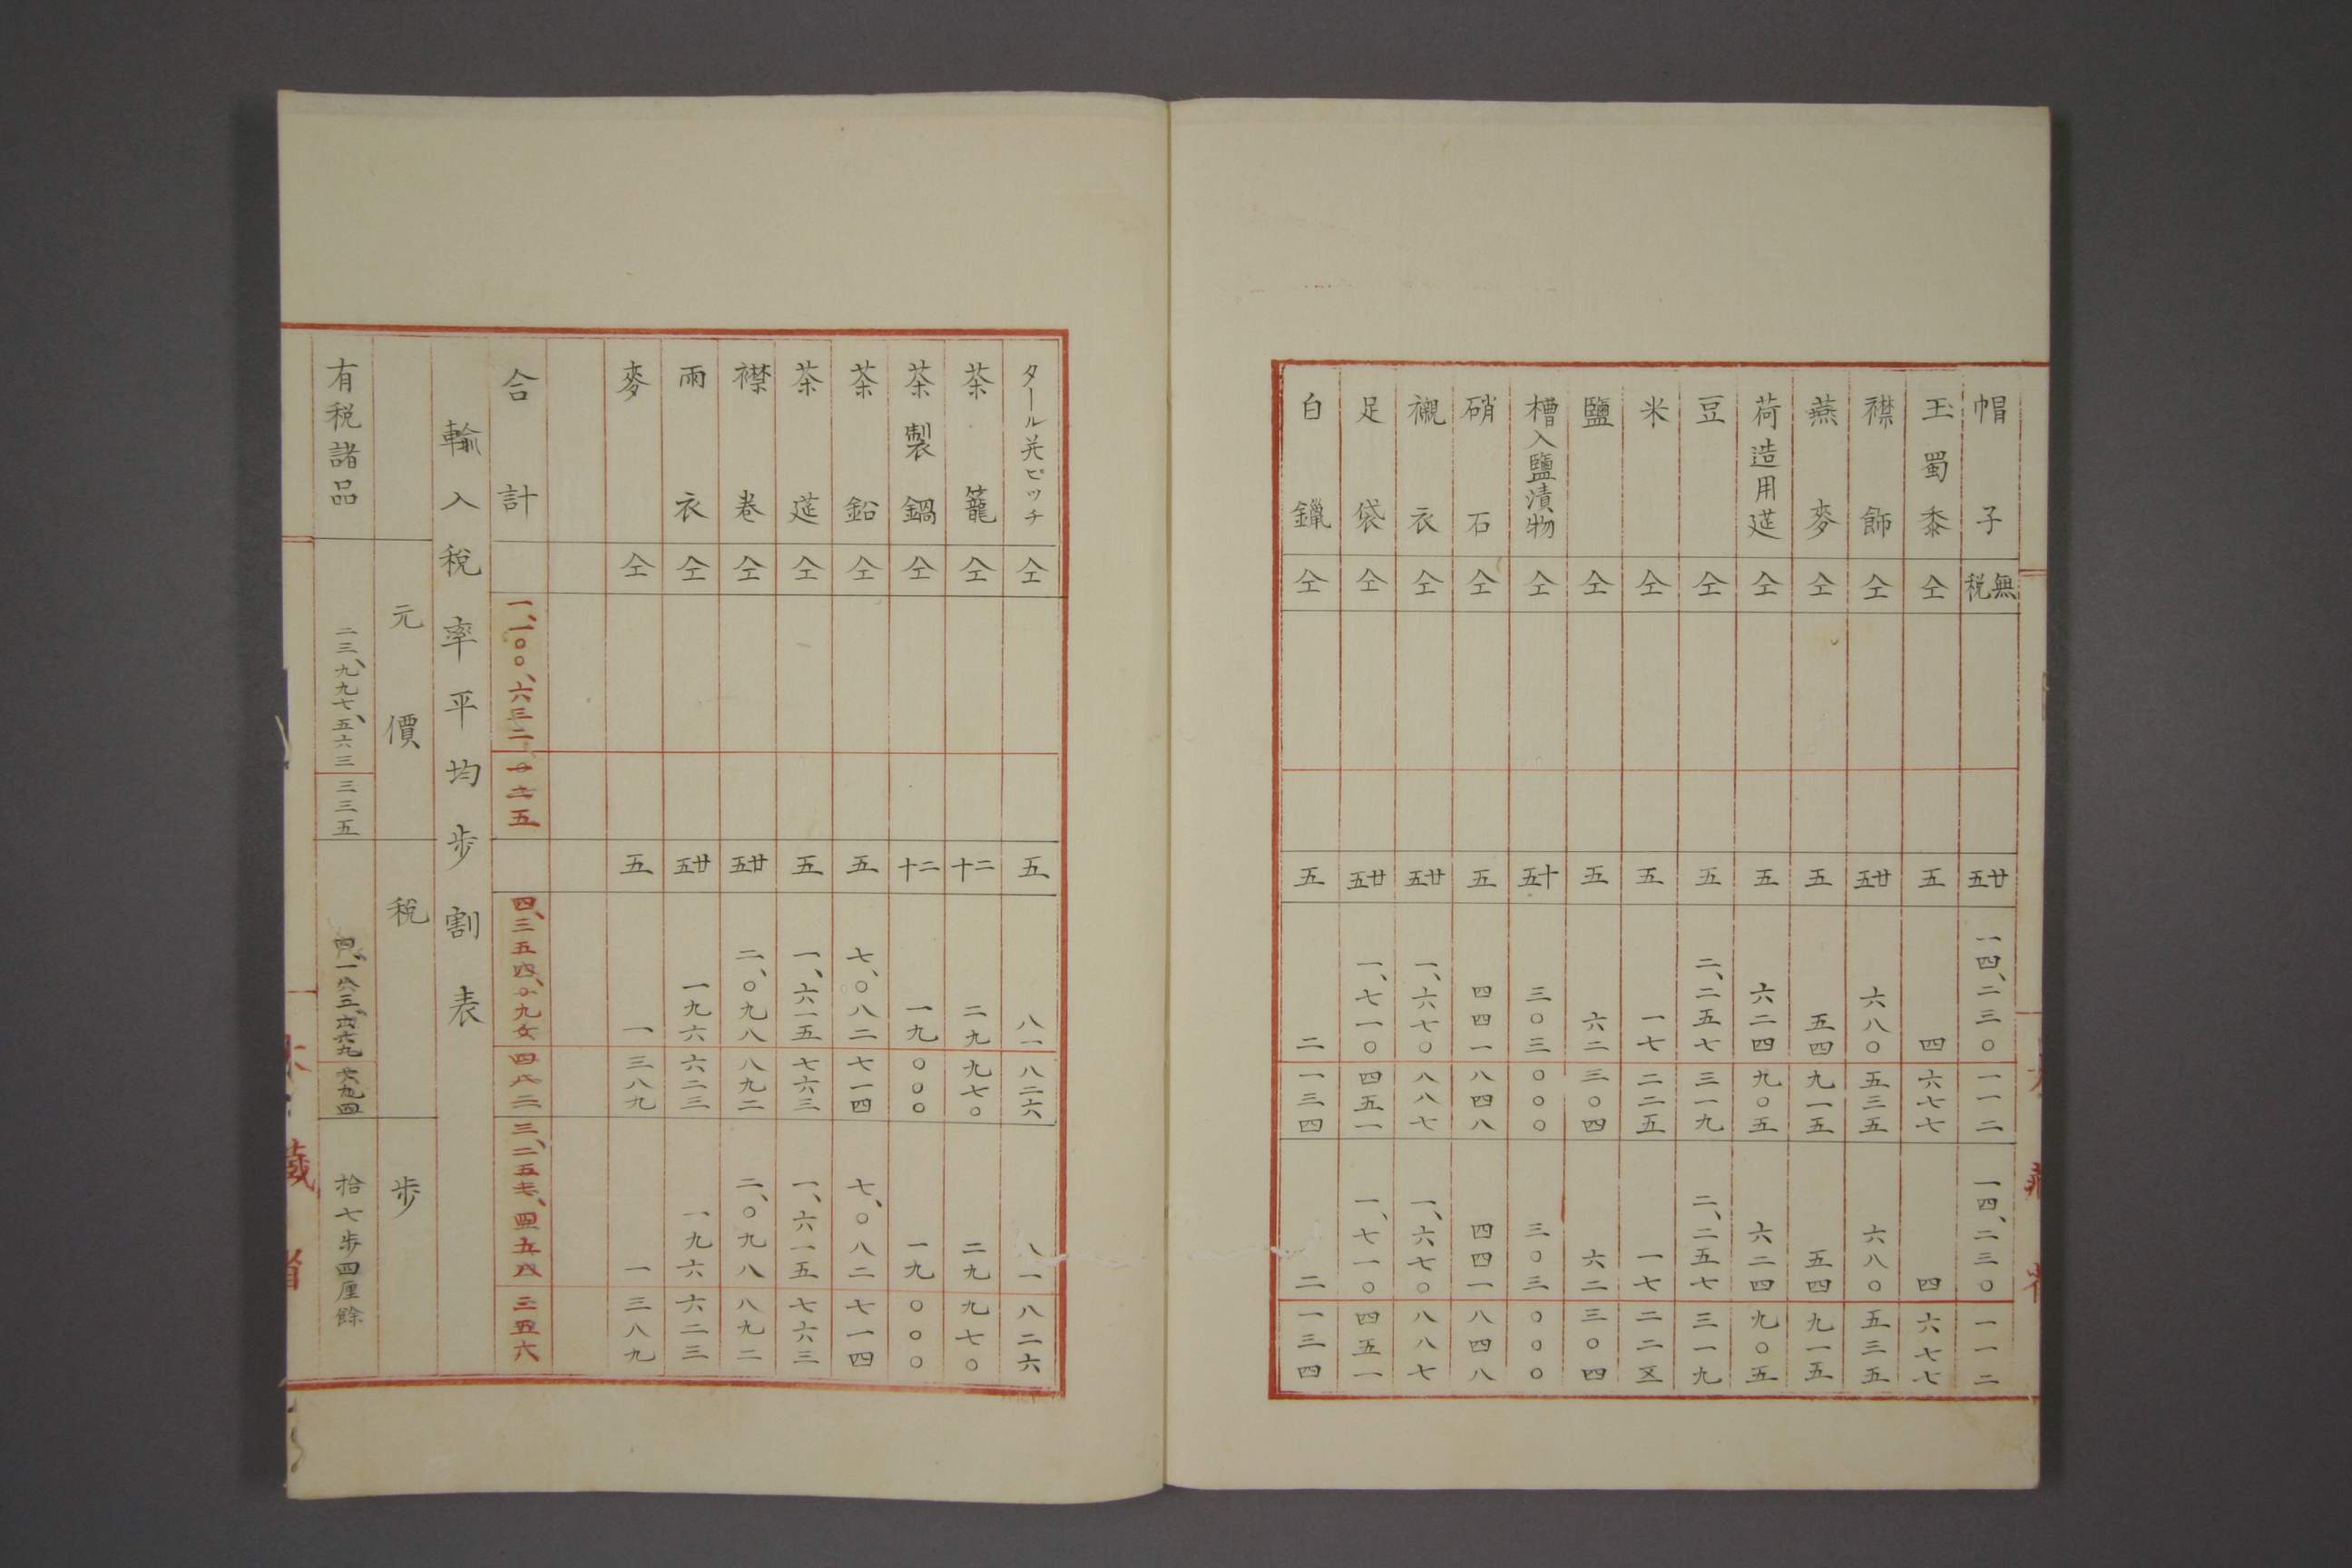 帽子 無税 廿五 一四、二三〇 一一二 一四、二三〇 一一二
玉蜀黍 仝 五 四 六七七 四 六七七
襟飾 仝 廿五 六八〇 五三五 六八〇 五三五
燕麥 仝 五 五四 九一五 五四 九一五
荷造用莚 仝 五 六二四 九〇五 六二四 九〇五
豆 仝 五 二、二五七 三一九 二、二五七 三一九
米 仝 五 一七 二二五 一七 二二五
鹽 仝 五 六二 三〇四 六二 三〇四
樽入鹽漬物 仝 十五 三〇三 〇〇〇 三〇三 〇〇〇
硝石 仝 五 四四一 八四八 四四一 八四八
襯衣 仝 廿五 一、六七〇 八八七 一、六七〇 八八七
足袋 仝 廿五 一、七一〇 四五一 一、七一〇 四五一
白鑞 仝 五 二 一三四 二 一三四
タール并ピッチ 仝 五 八一 八二六 八一 八二六
茶籠 仝 二十 二九 九七〇 二九 九七〇
茶製鍋 仝 二十 一九 〇〇〇 一九 〇〇〇
茶鉛 仝 五 七、〇八二 七一四 七、〇八二 七一四
茶莚 仝 五 一、六一五 七六三 一、六一五 七六三
襟巻 仝 廿五 二、〇九八 八九二 二、〇九八 八九二
雨衣 仝 廿五 一九六 六二三 一九六 六二三
麥 仝 五 一 三八九 一 三八九
合計
輸入税率平均歩割表
元價 税 歩
有税諸品 二三、九九七、五六三 三三五 拾七歩四厘餘